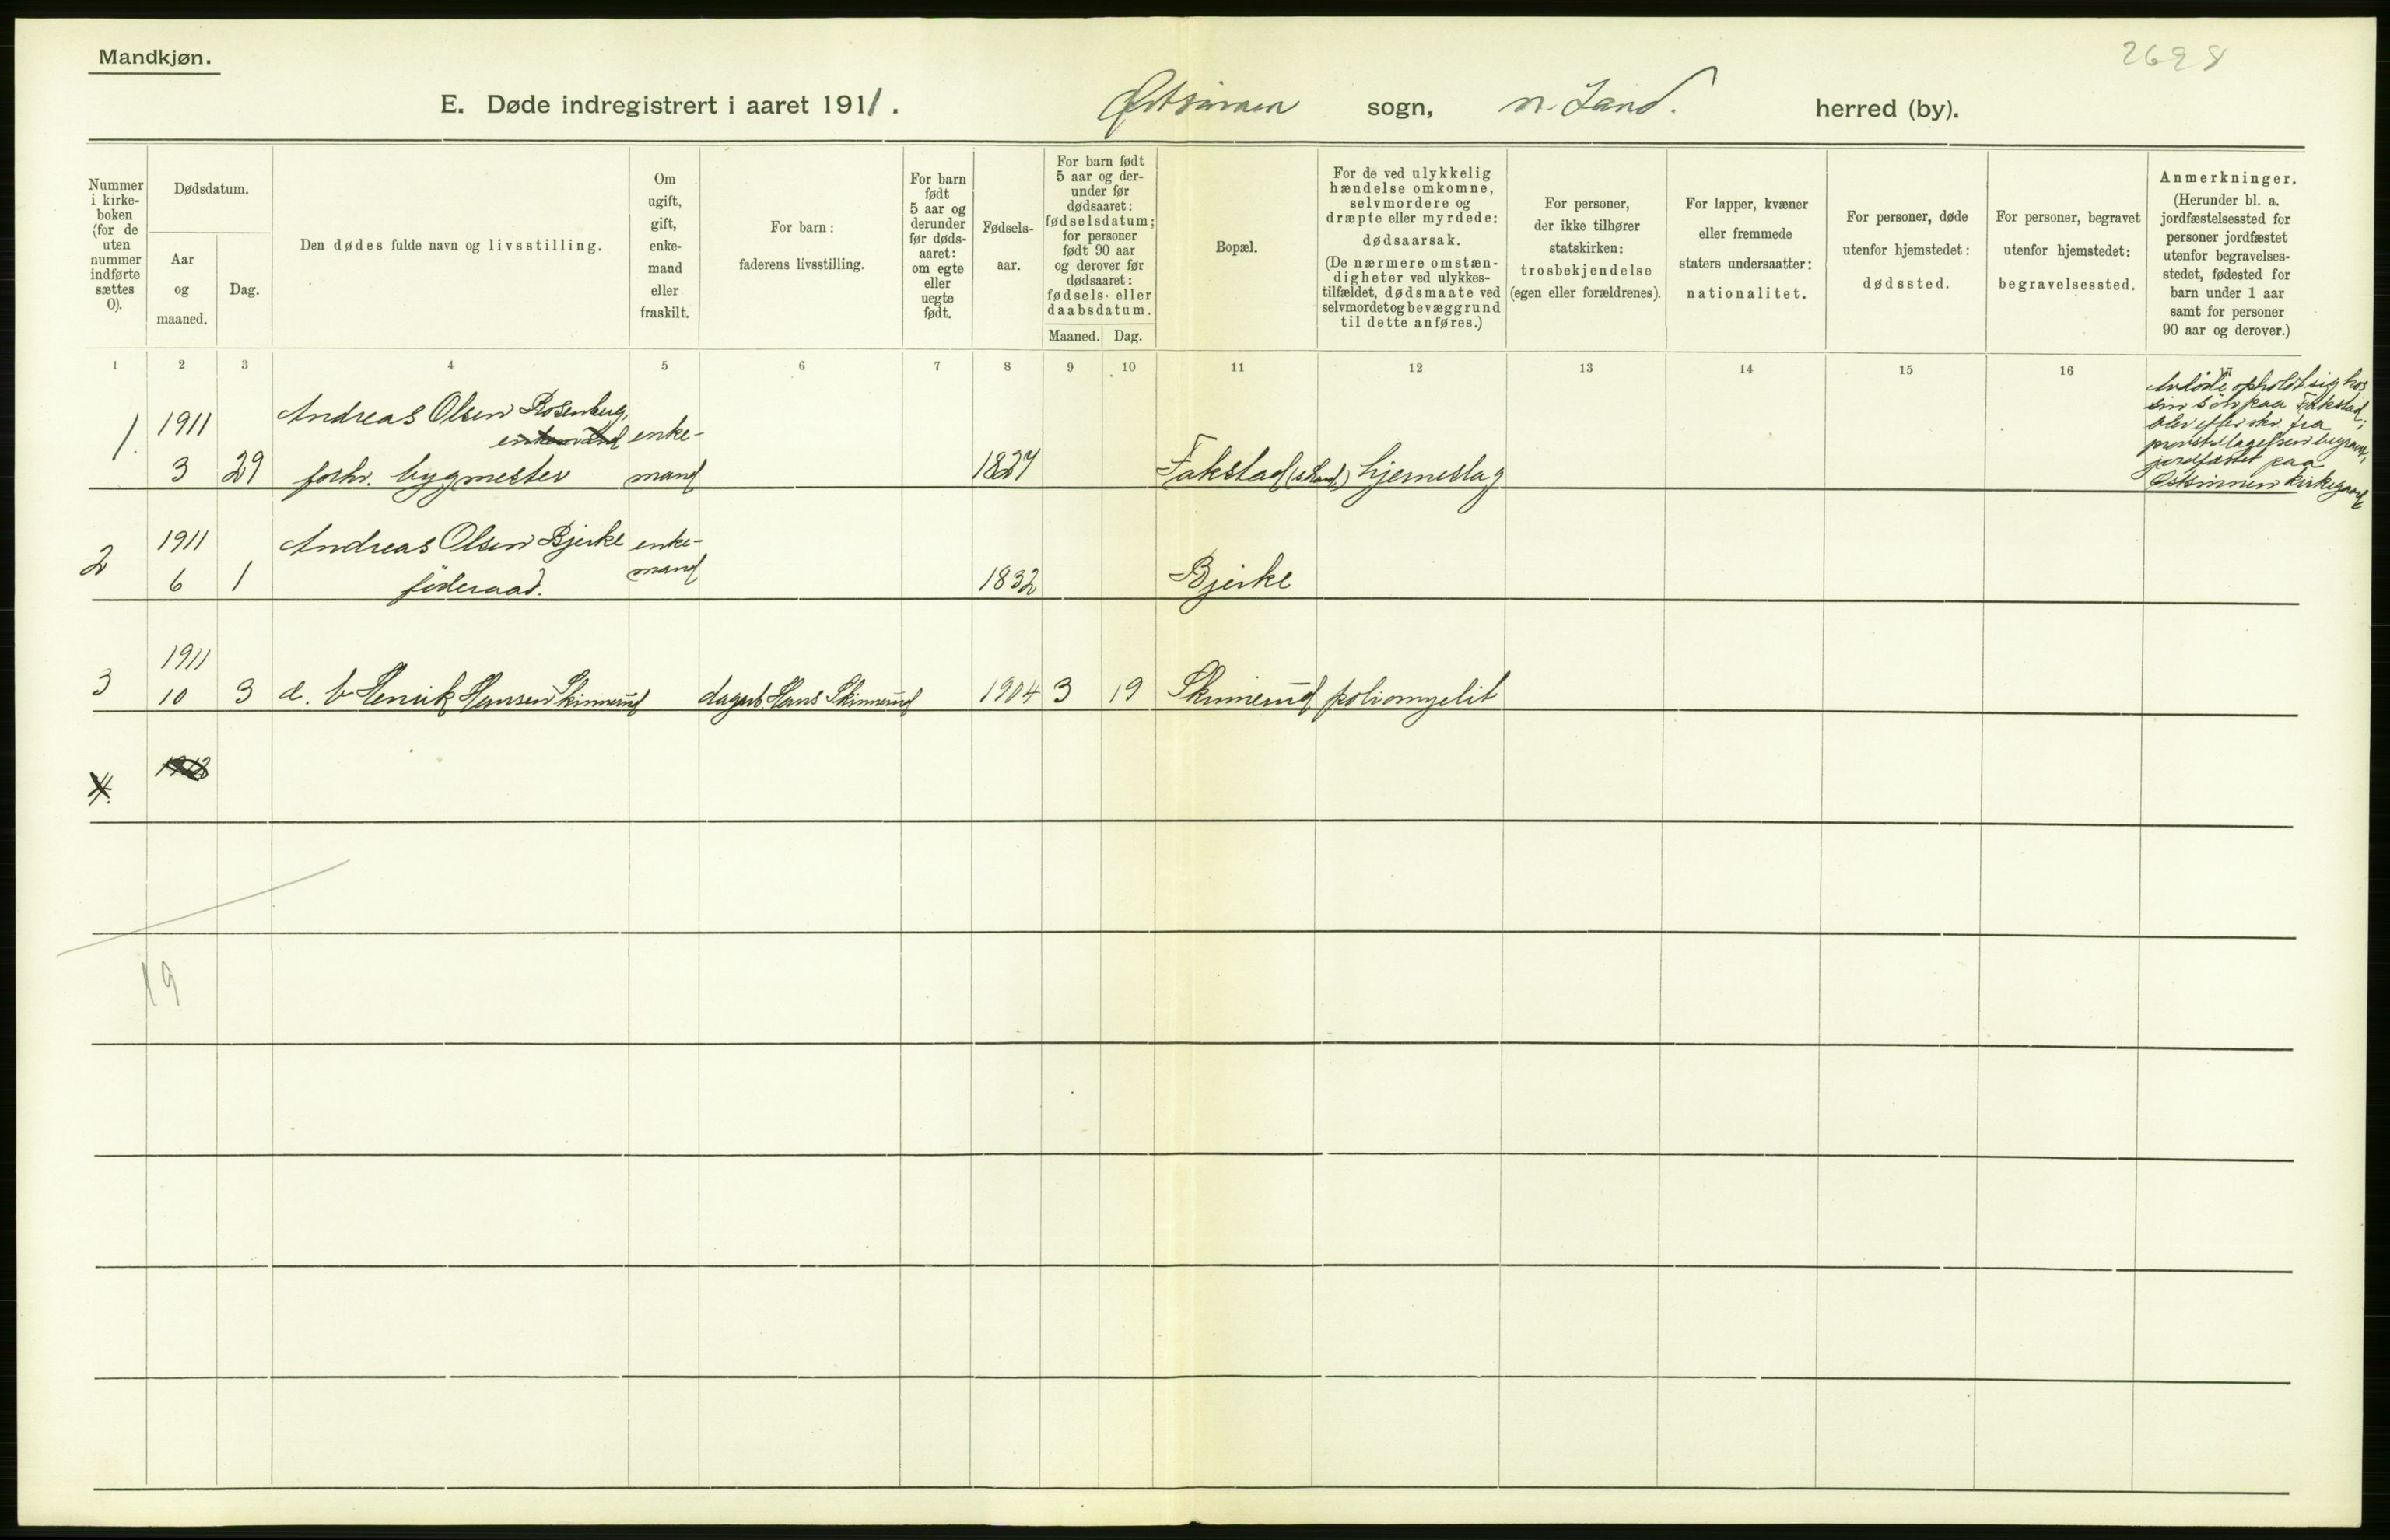 Mandkjøn.
2698
E. Døde indregistrert i aaret 1911. Østsinnen sogn, n. Land. herred (by).
Nummer i kirke-boken (for de uten nummer indførte sættes 0).
Dødsdatum.
Aar og maaned.
Dag.
Den dødes fulde navn og livsstilling.
Om ugift, gift, enke-mand eller fraskilt.
For barn: faderens livsstilling.
For barn født 5 aar og derunder før døds-aaret: om egte eller uegte født.
Fødsels-aar.
For barn født 5 aar og der-under før dødsaaret: fødselsdatum; for personer født 90 aar og derover før dødsaaret: fødsels- eller daabsdatum.
Maaned.
Dag.
Bopæl.
For de ved ulykkelig hændelse omkomne, selvmordere og dræpte eller myrdede: dødsaarsak. (De nærmere omstæn-digheter ved ulykkes-tilfældet, dødsmaate ved selvmordet og bevæggrund til dette anføres.)
For personer, der ikke tilhører statskirken: trosbekjendelse (egen eller forældrenes).
For lapper, kvæner eller fremmede staters undersaatter: nationalitet.
For personer, døde utenfor hjemstedet: dødssted.
For personer, begravet utenfor hjemstedet: begravelsessted.
Anmerkninger. (Herunder bl. a. jordfæstelsessted for personer jordfæstet utenfor begravelses-stedet, fødested for barn under 1 aar samt for personer 90 aar og derover.)
1 2 3 4 5 6 7 8 9 10 11 12 13 14 15 16 17
1. 1911 3 29 Andreas Olsen Rosenberg, enkemand forhv. bygmester enke-mand 1827 Fakstad (s. Land) hjerneslag
Avdøde opholdt sig hos
sin søn paa Fakstad;
blev efter
jordfæstet paa
Østsinnen kirkegaard
2 1911 6 1 Andreas Olsen Bjerke føderaad. enke-mand 1832 Bjerke
3 1911 10 3 d. b. Henrik Hansen Skinnerud dagarb. Hans Skinnerud 1904 3 19 Skinnerud poliomyelit
4. 1912
19